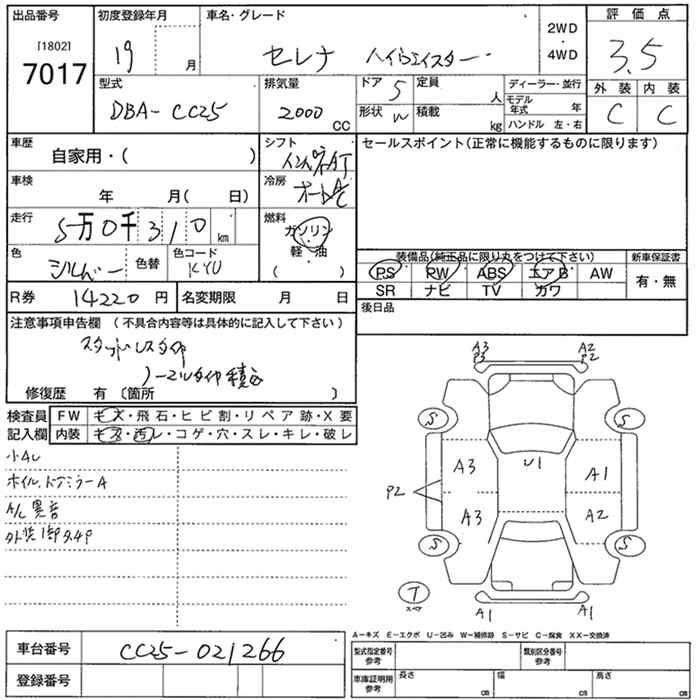 出品番号 初度登録年月 車名・グレード 2WD・4WD 評価点
[1802]
7017 19 月 セレナ ハイウェイスター 3.5
型式 排気量 ドア 定員 ディーラー・並行 外装 内装
DBA-CC25 2000 CC 5 人 モデル年式 年 C C
形状 W 積載 kg ハンドル 左・右
車歴 自家用・( ) シフト インパネAT セールスポイント(正常に機能するものに限ります)
車検 年 月( 日) 冷房 オートA/C
走行 5万0千310km 燃料 ガソリン
軽・油
( )
色 シルバー 色替 色コード KY0 装備品(純正品に限り丸をつけて下さい) 新車保証書
PS PW ABS エアB AW 有・無
SR ナビ TV カワ
R券 14220円 名変期限 月 日 後日品
注意事項申告欄 (不具合内容等は具体的に記入して下さい)
スタッドレスタイヤ
ノーマルタイヤ積込
修復歴 有 〔箇所 〕
検査員記入欄 FW キズ・飛石・ヒビ割・リペア跡・X要
内装 キズ・汚レ・コゲ・穴・スレ・キレ・破レ
小AU
ホイル、ドアミラーA
A/C異音
A3 P3 A2 P2
S S
A3 U1 A1
P2
A3 A2
S S
T
スペア
A1 A1
A-キズ E-エクボ U-凹み W-補修跡 S-サビ C-腐食 XX-交換済
車台番号 CC25-021266 型式指定番号 参考 類別区分番号 参考
登録番号 車庫証明用 参考 長さ cm 幅 cm 高さ cm